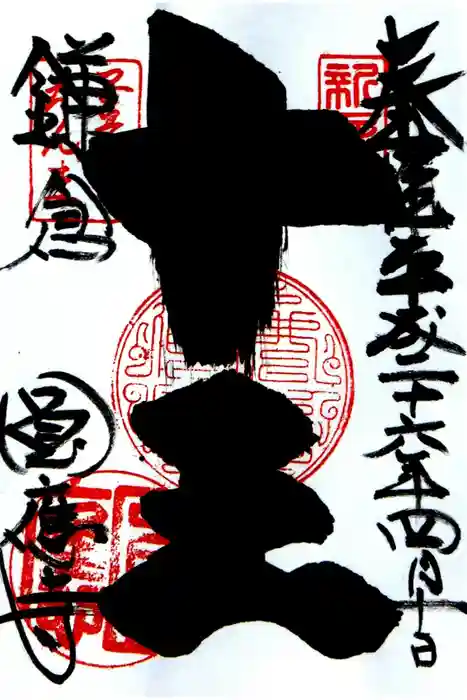 奉拝 平成二十六年四月十日
十王
鎌倉 圓應寺
新